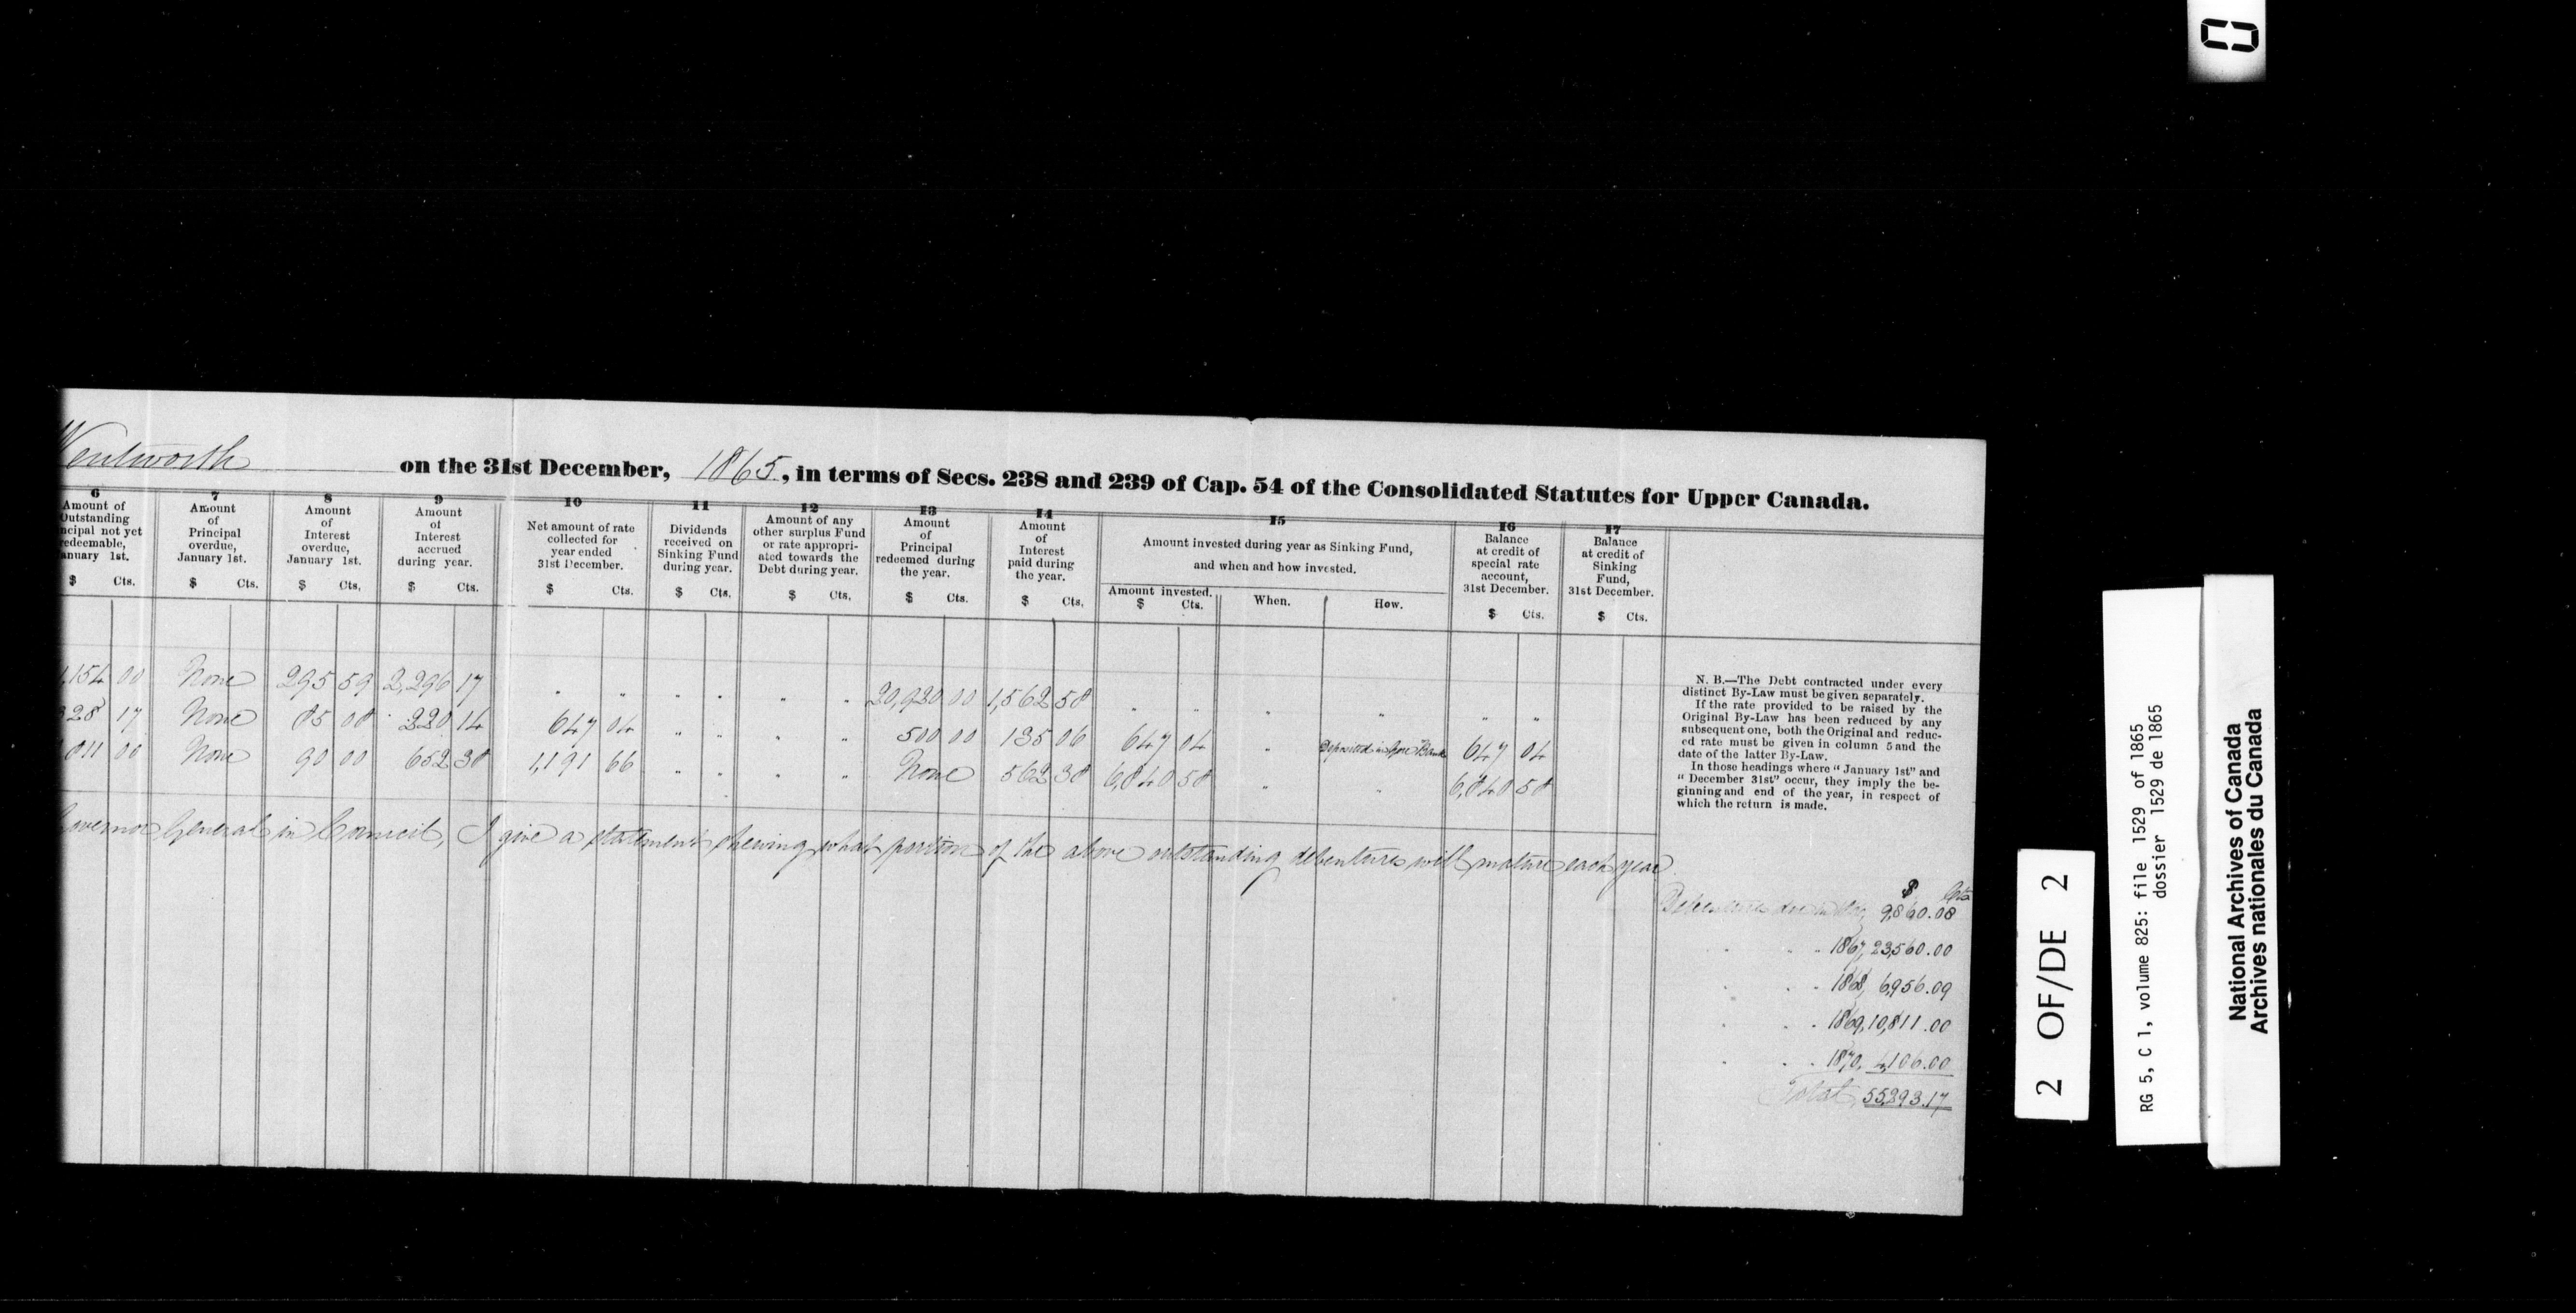 Wentworth on the 31st December, 1865, in terms of Secs. 238 and 239 of Cap. 54 of the Consolidated Statutes for Upper Canada.
6 7 8 9 10 11 12 13 14 15 16 17
Amount of
Outstanding
ncipal not yet
redeemable,
anuary 1st.
$ Cts.
Amount
of
Principal
overdue,
January 1st.
$ Cts.
Amount
of
Interest
overdue,
January 1st.
$ Cts.
Amount
of
Interest
accrued
during year.
$ Cts.
Net amount of rate
collected for
year ended
31st December.
$ Cts.
Dividends
received on
Sinking Fund
during year.
$ Cts.
Amount of any
other surplus Fund
or rate appropri-
ated towards the
Debt during year.
$ Cts.
Amount
of
Principal
redeemed during
the year.
$ Cts.
Amount
of
Interest
paid during
the year.
$ Cts.
Amount invested during year as Sinking Fund,
and when and how invested.
Amount invested. When. How.
$ Cts.
Balance
at credit of
special rate
account,
31st December.
$ Cts.
Balance
at credit of
Sinking
Fund,
31st December.
$ Cts.
,154 00 None 295 59 2,296 17 " " " " " " 20,920 00 1,562 58 " " " " " "
328 17 None 85 08 220 14 647 04 " " " " 500 00 135 06 647 04 " Deposited in Gore Bank 647 04
811 00 None 90 00 652 38 1,191 66 " " " " None 562 38 6,840 58 " " 6,840 58
N. B.—The Debt contracted under every
distinct By-Law must be given separately.
If the rate provided to be raised by the
Original By-Law has been reduced by any
subsequent one, both the Original and reduc-
ed rate must be given in column 5 and the
date of the latter By-Law.
In those headings where "January 1st" and
"December 31st" occur, they imply the be-
ginning and end of the year, in respect of
which the return is made.
Governor General in Council, I give a statement shewing what portion of the above outstanding debentures will mature each year
$ Cts
Debentures due in 9,860.08
" " " 1867, 23,560.00
" " " 1868, 6,956.09
" " " 1869, 10,811.00
" " " 1870, 4,106.00
Total, 55,293.17
2 OF/DE 2
RG 5, C 1, volume 825: file 1529 of 1865
dossier 1529 de 1865
National Archives of Canada
Archives nationales du Canada